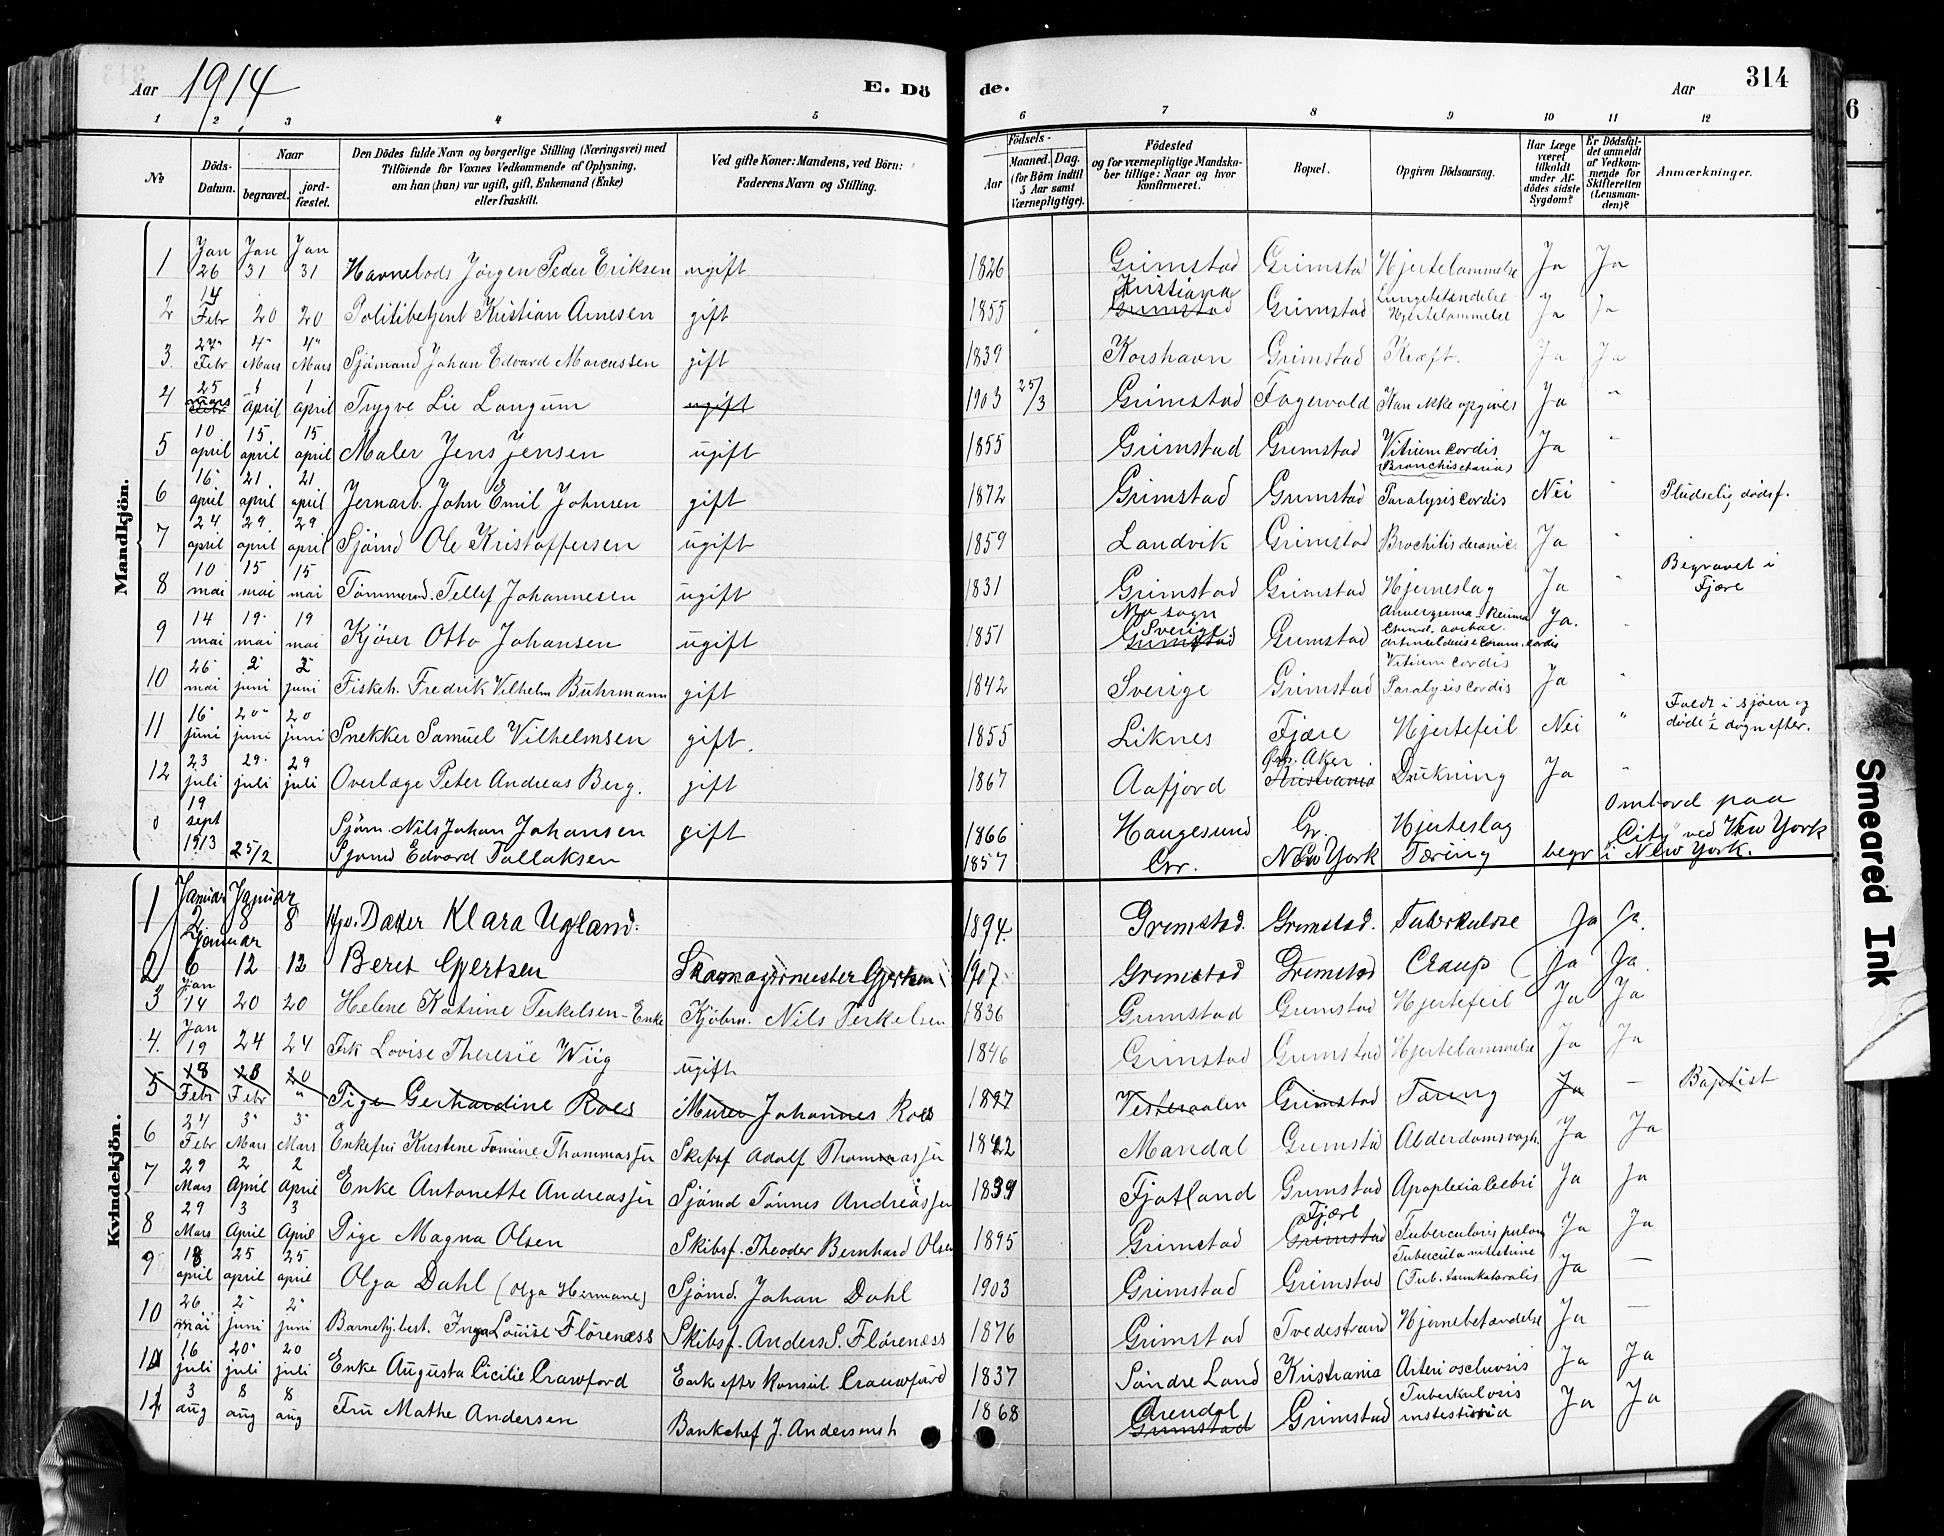 Aar 1914 E. Dö de. Aar 314
1 2 3 4 5 6 7 8 9 10 11 12
No. Döds-Datum. Naar begravet. jordfæstet. Den Dödes fulde Navn og borgerlige Stilling (Næringsvei) med Tilföiende for Voxnes Vedkommende af Oplysning, om han (hun) var ugift, gift, Enkemand (Enke) eller fraskilt. Ved gifte Koner: Mandens, ved Börn: Faderens Navn og Stilling. Födsels- Aar Maaned. Dag. (for Börn indtil 5 Aar samt Værnepligtige). Födested og for værnepligtige Mandskaber tillige: Naar og hvor konfirmeret. Bopæl. Opgiven Dödsaarsag. Har Læge været tilkaldt under Afdödes sidste Sygdom? Er Dödsfaldet anmeldt af Vedkommende for Skifteretten (Lensmanden)? Anmærkninger.
Mandkjön.
1 Jan 26 Jan 31 Jan 31 Havnelods Jörgen Peder Eriksen ugift 1826 Grimstad Grimstad Hjertelammelse Ja Ja
2 14 Febr 20 20 Politibetjent Kristian Arnesen gift 1855 Kristiania Grimstad Grimstad Lungebetændelse Hjertelammelse Ja Ja
3. 27 Febr 4 Mars 4 Mars Sjömand Johan Edvard Marcussen gift 1839 Korshavn Grimstad Kræft. Ja Ja
4 25 mars Febr 1 april 1 april Trygve Lie Langum ugift 1903 25/3 Grimstad Fagervold Kan ikke opgives Ja "
5 10 april 15 april 15 april Maler Jens Jensen ugift 1855 Grimstad Grimstad Vitium cordis Ja "
6 16 april 21 april 21 april Jernarb. John Emil Johnsen gift 1872 Grimstad Grimstad Paralysis cordis Nei " Pludselig dödsf.
7 24 april 29 april 29 april Sjömd Ole Kristoffersen ugift 1859 Landvik Grimstad Ja "
8 10 mai 15 mai 15 mai Tellef Johannesen ugift 1831 Grimstad Grimstad Hjerneslag Ja " Begravet i Fjære
9 14 mai 19 mai 19 mai Kjörer Otto Johansen ugift 1851 Mo sogn Sverige Grimstad Grimstad Ja.
10 26 mai 2 juni 2 juni Fiskeh. Fredrik Vilhelm Buhrmann gift 1842 Sverige Grimstad Vitium cordis Paralysis cordis Ja "
11 16 juni 20 juni 20 juni Snekker Samuel Vilhelmsen gift. 1855 Liknes Fjære Hjertefeil Nei " Faldt i sjöen og döde ½ dögn efter.
12 23 juli 29 juli 29 juli Overlæge Peter Andreas Berg. gift 1867 Aafjord Aker Kristiania Drukning Ja "
0 19 sept 1913 Sjöm. Nils Johan Johansen gift 1866 Haugesund Gr. Hjerteslag Ombord paa "City" ved New York
25/2 Sjömd Edvard Tallaksen 1857 Gr. New York Tæring begr i New York.
Kvindekjön.
1 Januar 2 Januar 8 8 Klara Ugland. 1894. Grimstad. Grimstad. Tuberkulose Ja Ja.
2 Januar 6 12 12 Beret Gjertsen Skomagermester Gjertsen 1907. Grimstad Grimstad Croup Ja Ja.
3 Jan 14 20 20 Helene Katrine Terkelsen - Enke Kjöbm. Nils Terkelsen 1836 Grimstad Grimstad Hjertefeil Ja Ja
4. Jan 19 24 24 Frk Lovise Theresie Wiig ugift 1846 Grimstad Grimstad Hjertelammelse Ja Ja
5 18 Febr 20 Febr 20 " Pige Gerhardine Roes Murer Johannes Roes 1897 Vesteraalen Grimstad Tæring Ja — Baptist
6 24 Febr 3 Mars 3 Mars Enkefru Kristine Tomine Thommassen Skibsf Adolf Thommassen 1842 Mandal Grimstad Ja Ja
7 29 Mars 2 April 2 April Enke Antonette Andreassen Sjömd Tönnes Andreassen 1839 Fjotland Grimstad Apoplexia Cerebri Ja Ja
8 29 Mars 3 April 3 April Pige Magna Olsen Skibsf. Theodor Bernhard Olsen 1895 Grimstad Fjære Grimstad Tuberculosis pulm Ja Ja
9 18 april 25 april 25 april Olga Dahl (Olga Hermane) Sjömd. Johan Dahl 1903 Grimstad Grimstad Ja —
10 26 mai 2 juni 2 juni Barnehj.best. Inga Louise Flörenæss Skibsf. Anders S. Flörenæss 1876 Grimstad Tvedestrand Hjernebetændelse Ja —
11 16 juli 20 juli 20 juli Enke Augusta Cicilie Crawford Enke efter Konsul Crawford 1837 Söndre Land Kristiania Ja Ja
12 3 aug 8 aug 8 aug Fru Mathe Andersen Bankchef J. Andersens h 1868 Arendal Grimstad Grimstad Tuberkulosis Ja Ja
6
Smeared Ink